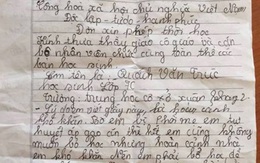 Cộng hoà xã hội chủ nghĩa Việt Nam
Độc lập - tự do - hạnh phúc
Đơn xin phép thôi học
Kính thưa thầy giáo cô giáo và cán
bộ nhân viên chức cùng toàn thể các
bạn học sinh
Em tên là: Quách Văn Trúc
học sinh Lớp 7C
Trường: trung học cơ sở xuân
Lý do em viết giấy này, là hoàn cảnh
khó khăn Bố em bị mẹ em
huyết áp cao cần thế em cũng không
muốn bỏ học nhưng hoàn cảnh nhà
em khó khăn nên em phải bỏ học để